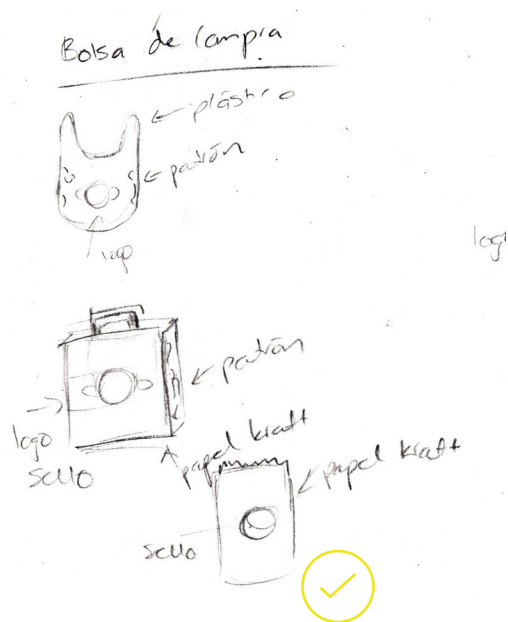 Bolsa de Compra
plástico
patrón
logo
logo
patrón
logo
sello
papel kraft
papel kraft
sello